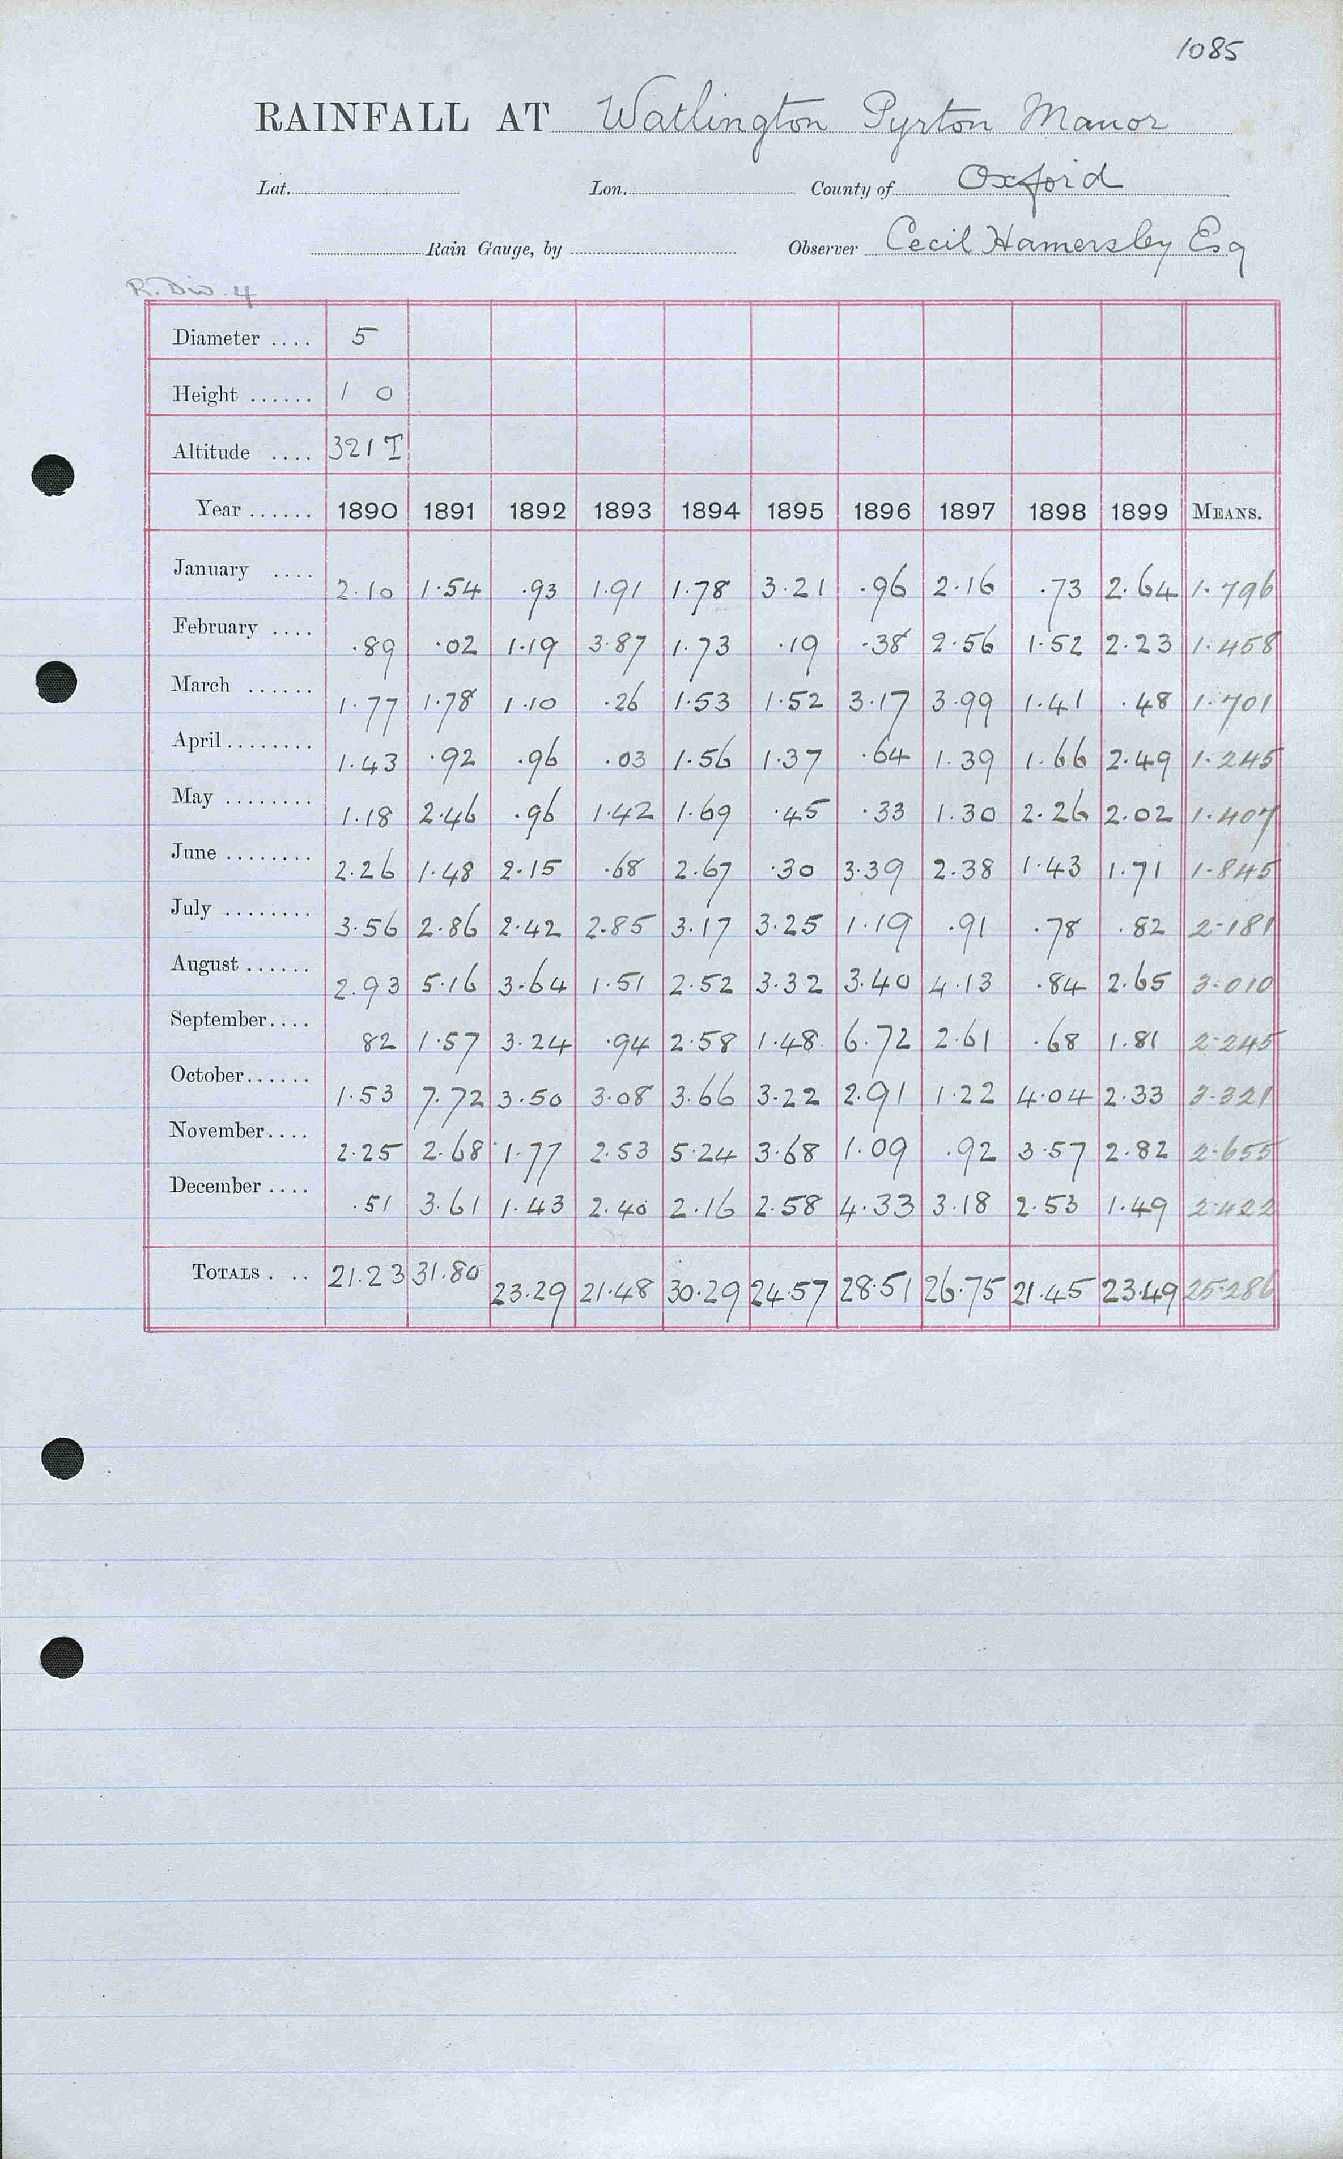 1085
RAINFALL AT Watlington Pyrton Manor
Lat. Lon. County of Oxford
Rain Gauge, by Observer Cecil Hamersley Esq
R. Div. 4
Diameter .... 5
Height ...... 1 0
Altitude .... 321 T
Year ...... 1890 1891 1892 1893 1894 1895 1896 1897 1898 1899 MEANS.
January .... 2.10 1.54 .93 1.91 1.78 3.21 .96 2.16 .73 2.64 1.796
February .... .89 .02 1.19 3.87 1.73 .19 .38 2.56 1.52 2.23 1.458
March ...... 1.77 1.78 1.10 .26 1.53 1.52 3.17 3.99 1.41 .48 1.701
April ........ 1.43 .92 .96 .03 1.56 1.37 .64 1.39 1.66 2.49 1.245
May ........ 1.18 2.46 .96 1.42 1.69 .45 .33 1.30 2.26 2.02 1.407
June ........ 2.26 1.48 2.15 .68 2.67 .30 3.39 2.38 1.43 1.71 1.845
July ........ 3.56 2.86 2.42 2.85 3.17 3.25 1.19 .91 .78 .82 2.181
August ...... 2.93 5.16 3.64 1.51 2.52 3.32 3.40 4.13 .84 2.65 3.010
September.... 82 1.57 3.24 .94 2.58 1.48 6.72 2.61 .68 1.81 2.245
October...... 1.53 7.72 3.50 3.08 3.66 3.22 2.91 1.22 4.04 2.33 3.321
November.... 2.25 2.68 1.77 2.53 5.24 3.68 1.09 .92 3.57 2.82 2.655
December .... .51 3.61 1.43 2.40 2.16 2.58 4.33 3.18 2.53 1.49 2.422
TOTALS . .. 21.23 31.80 23.29 21.48 30.29 24.57 28.51 26.75 21.45 23.49 25.286